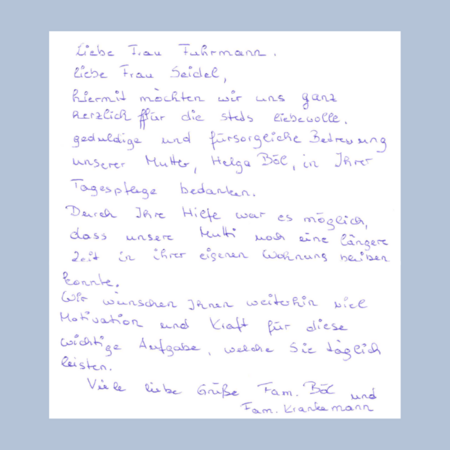 Liebe Frau Fuhrmann.
liebe Frau Seidel,
hiermit möchten wir uns ganz
herzlich für die stets liebevolle,
geduldige und fürsorgliche Betreuung
unserer Mutter, Helga Böl, in Ihrer
Tagespflege bedanken.
Durch Ihre Hilfe war es möglich,
dass unsere Mutti noch eine längere
Zeit in ihrer eigenen Wohnung bleiben
konnte.
Wir wünschen Ihnen weiterhin viel
Motivation und Kraft für diese
wichtige Aufgabe, welche Sie täglich
leisten.
Viele liebe Grüße Fam. Böl und
Fam. Krankemann